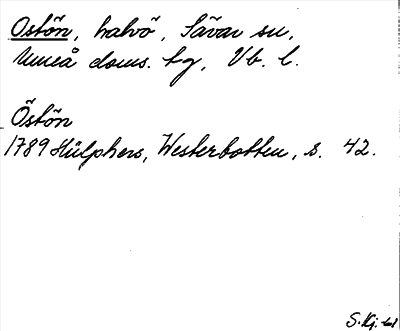 Ostön, halvö, Sävar sn,
Umeå doms. tg, Vb. l.
Östön
1789 Hülphers, Westerbotten, s. 42.
S. Kj.